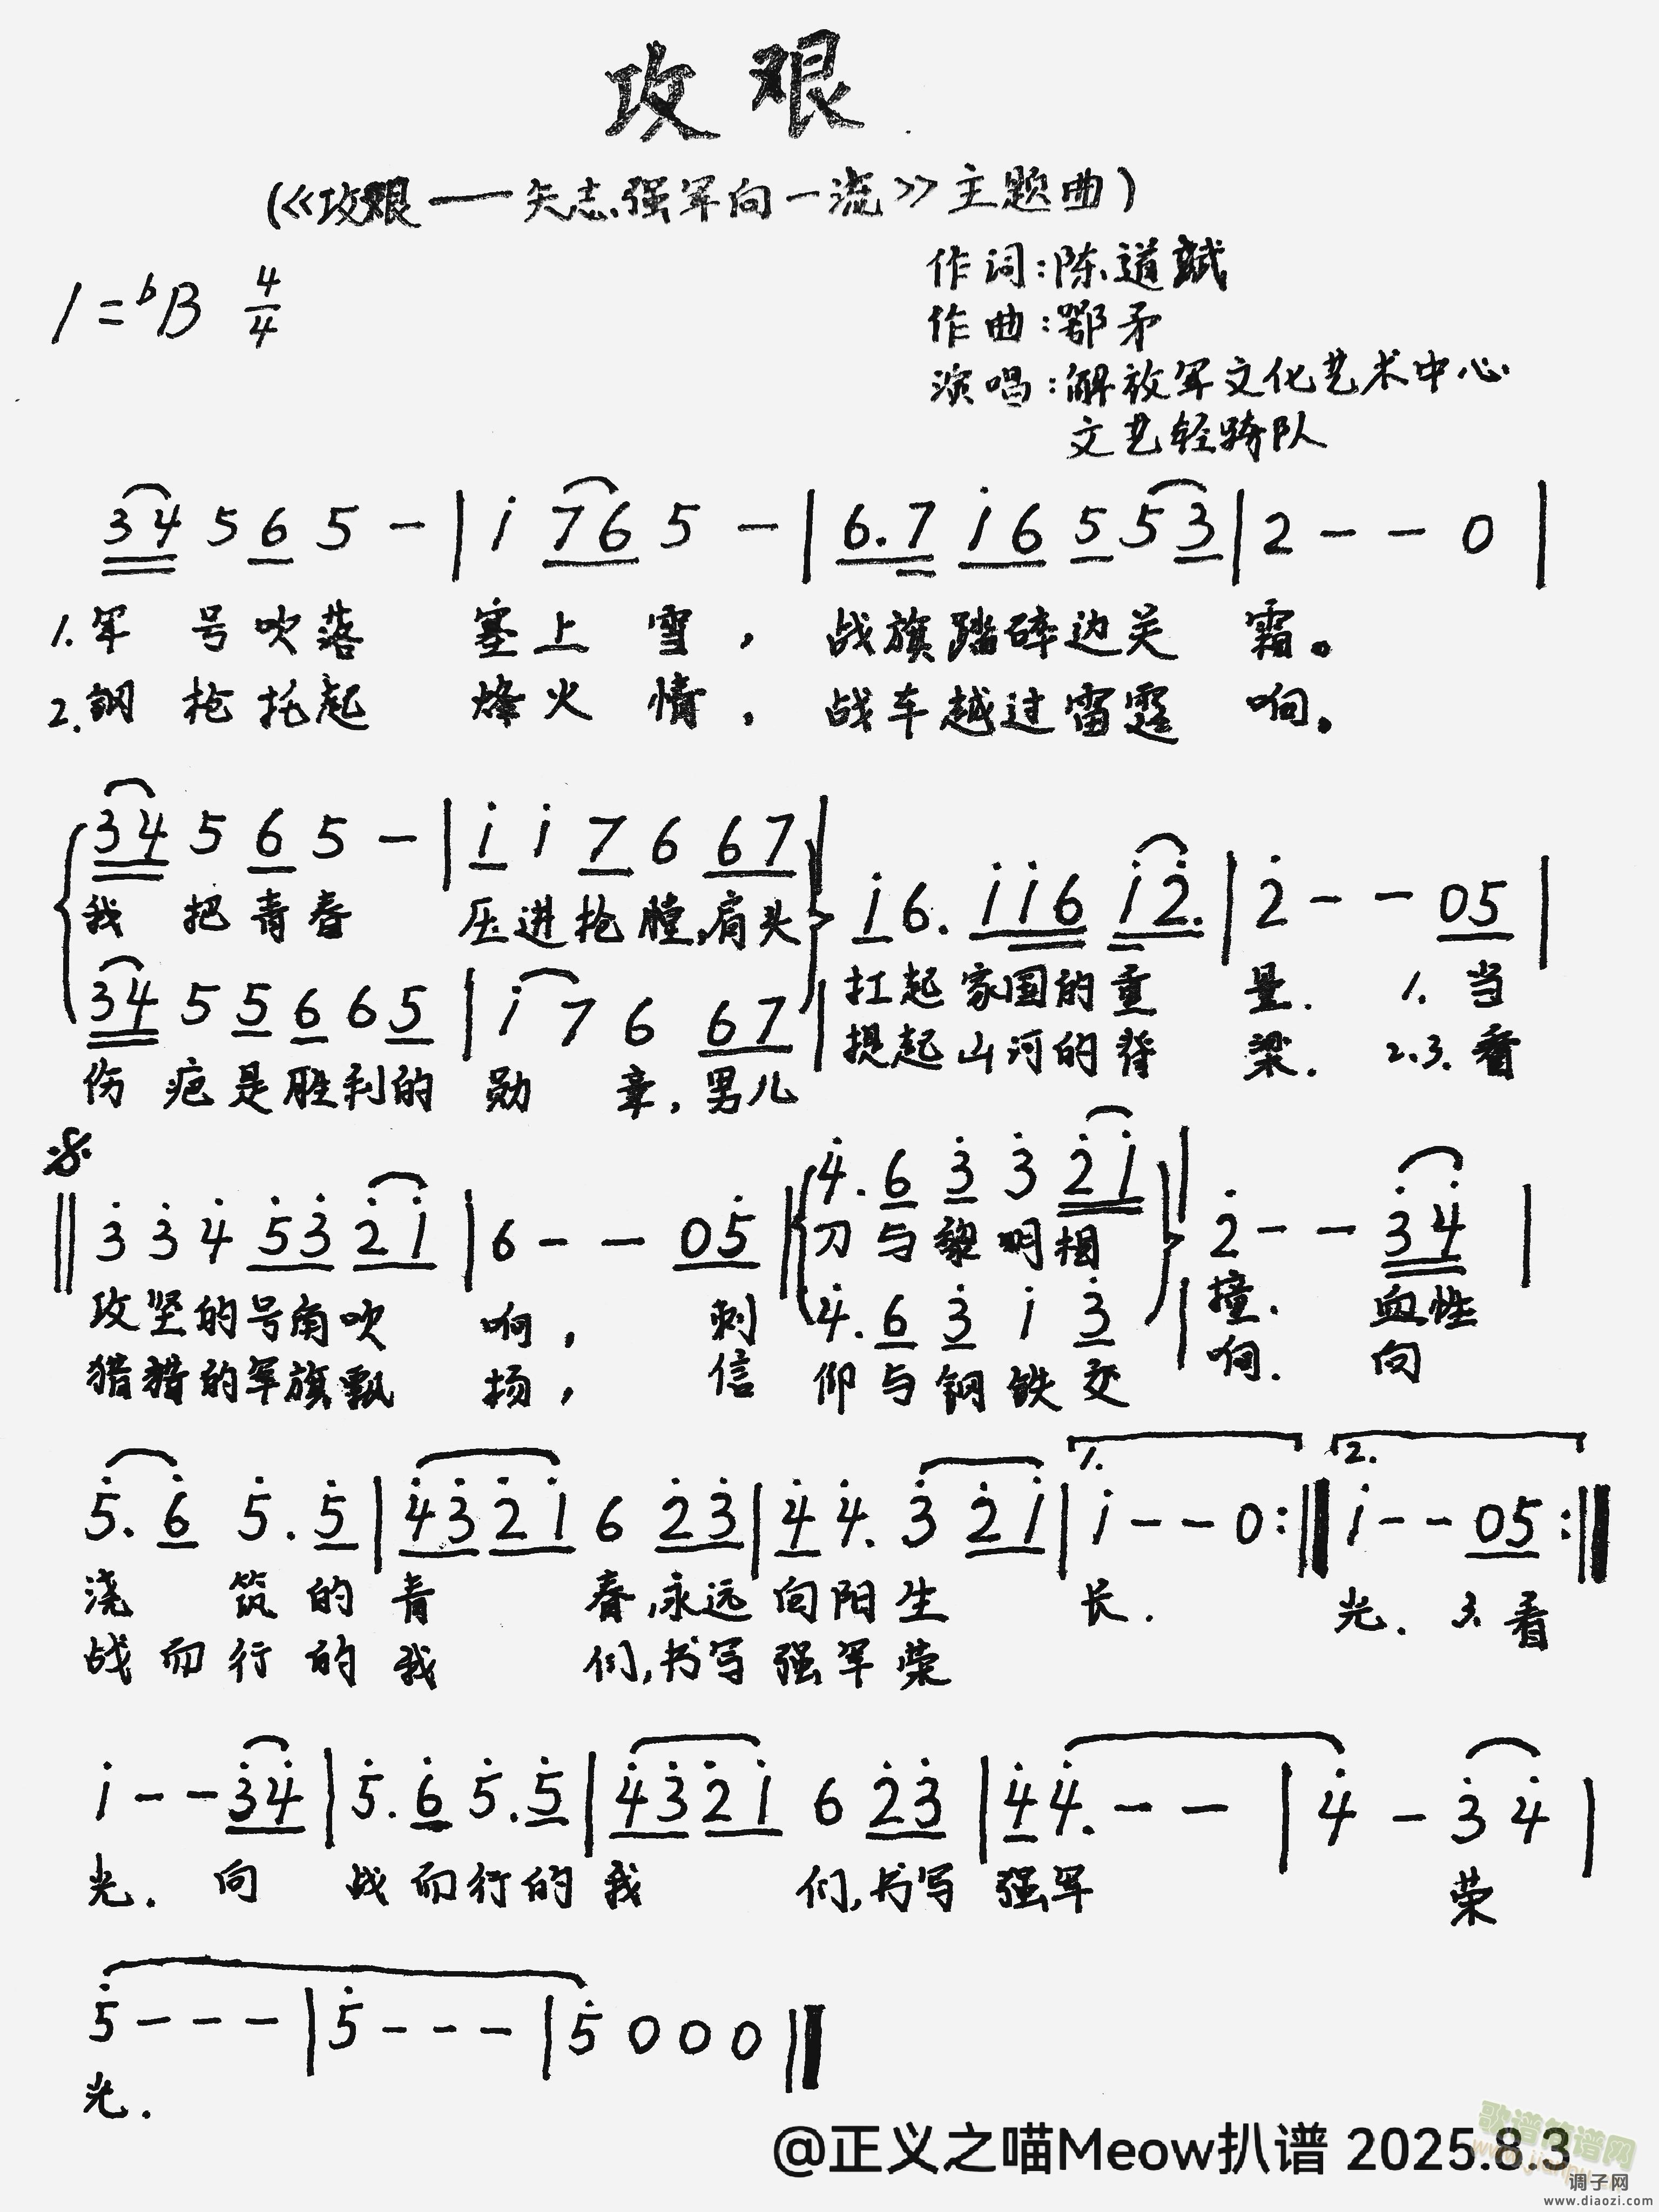 攻艰
(《攻艰——矢志强军向一流》主题曲)
作词:陈道斌
1=♭B 4/4
作曲:鄂矛
演唱:解放军文化艺术中心
文艺轻骑队
34 5 6 5 - | i 76 5 - | 6.7 i6 5 5 3 | 2 - - 0 |
1.军 号吹落 塞上 雪,战旗踏碎边关 霜。
2.钢 枪托起 烽火 情,战车越过雷霆 响。
34 5 6 5 - | i i 7 6 67 | i 6. i i6 i2. | 2 - - 05 |
我 把青春 压进抢膛,肩头 扛起家国的重 量. 1.当
34 5 5 6 6 5 | i 7 6 67 |
伤 疤是胜利的 勋 章,男儿 提起山河的脊 梁. 2.3.看
3 3 4 53 2i | 6 - - 05 | 4. 6 3 3 2i | 2 - - 34 |
攻坚的号角吹 响, 刺 刀与黎明相 撞. 血性
4. 6 3 i 3
猎猎的军旗飘 扬, 信 仰与钢铁交 响. 向
1. 2.
5. 6 5. 5 | 43 2i 6 23 | 4 4. 3 2i | i - - 0 :‖ i - - 05 :‖
浇 筑的青 春,永远向阳生 长. 光. 3.看
战而行的我 们,书写强军荣
i - - 34 | 5. 6 5. 5 | 43 2i 6 23 | 4 4. - - | 4 - 3 4 |
光. 向 战而行的我 们,书写 强军 荣
5 - - - | 5 - - - | 5 0 0 0 ‖
光.
@正义之喵Meow扒谱 2025.8.3
歌谱简谱网
调子网
www.diaozi.com